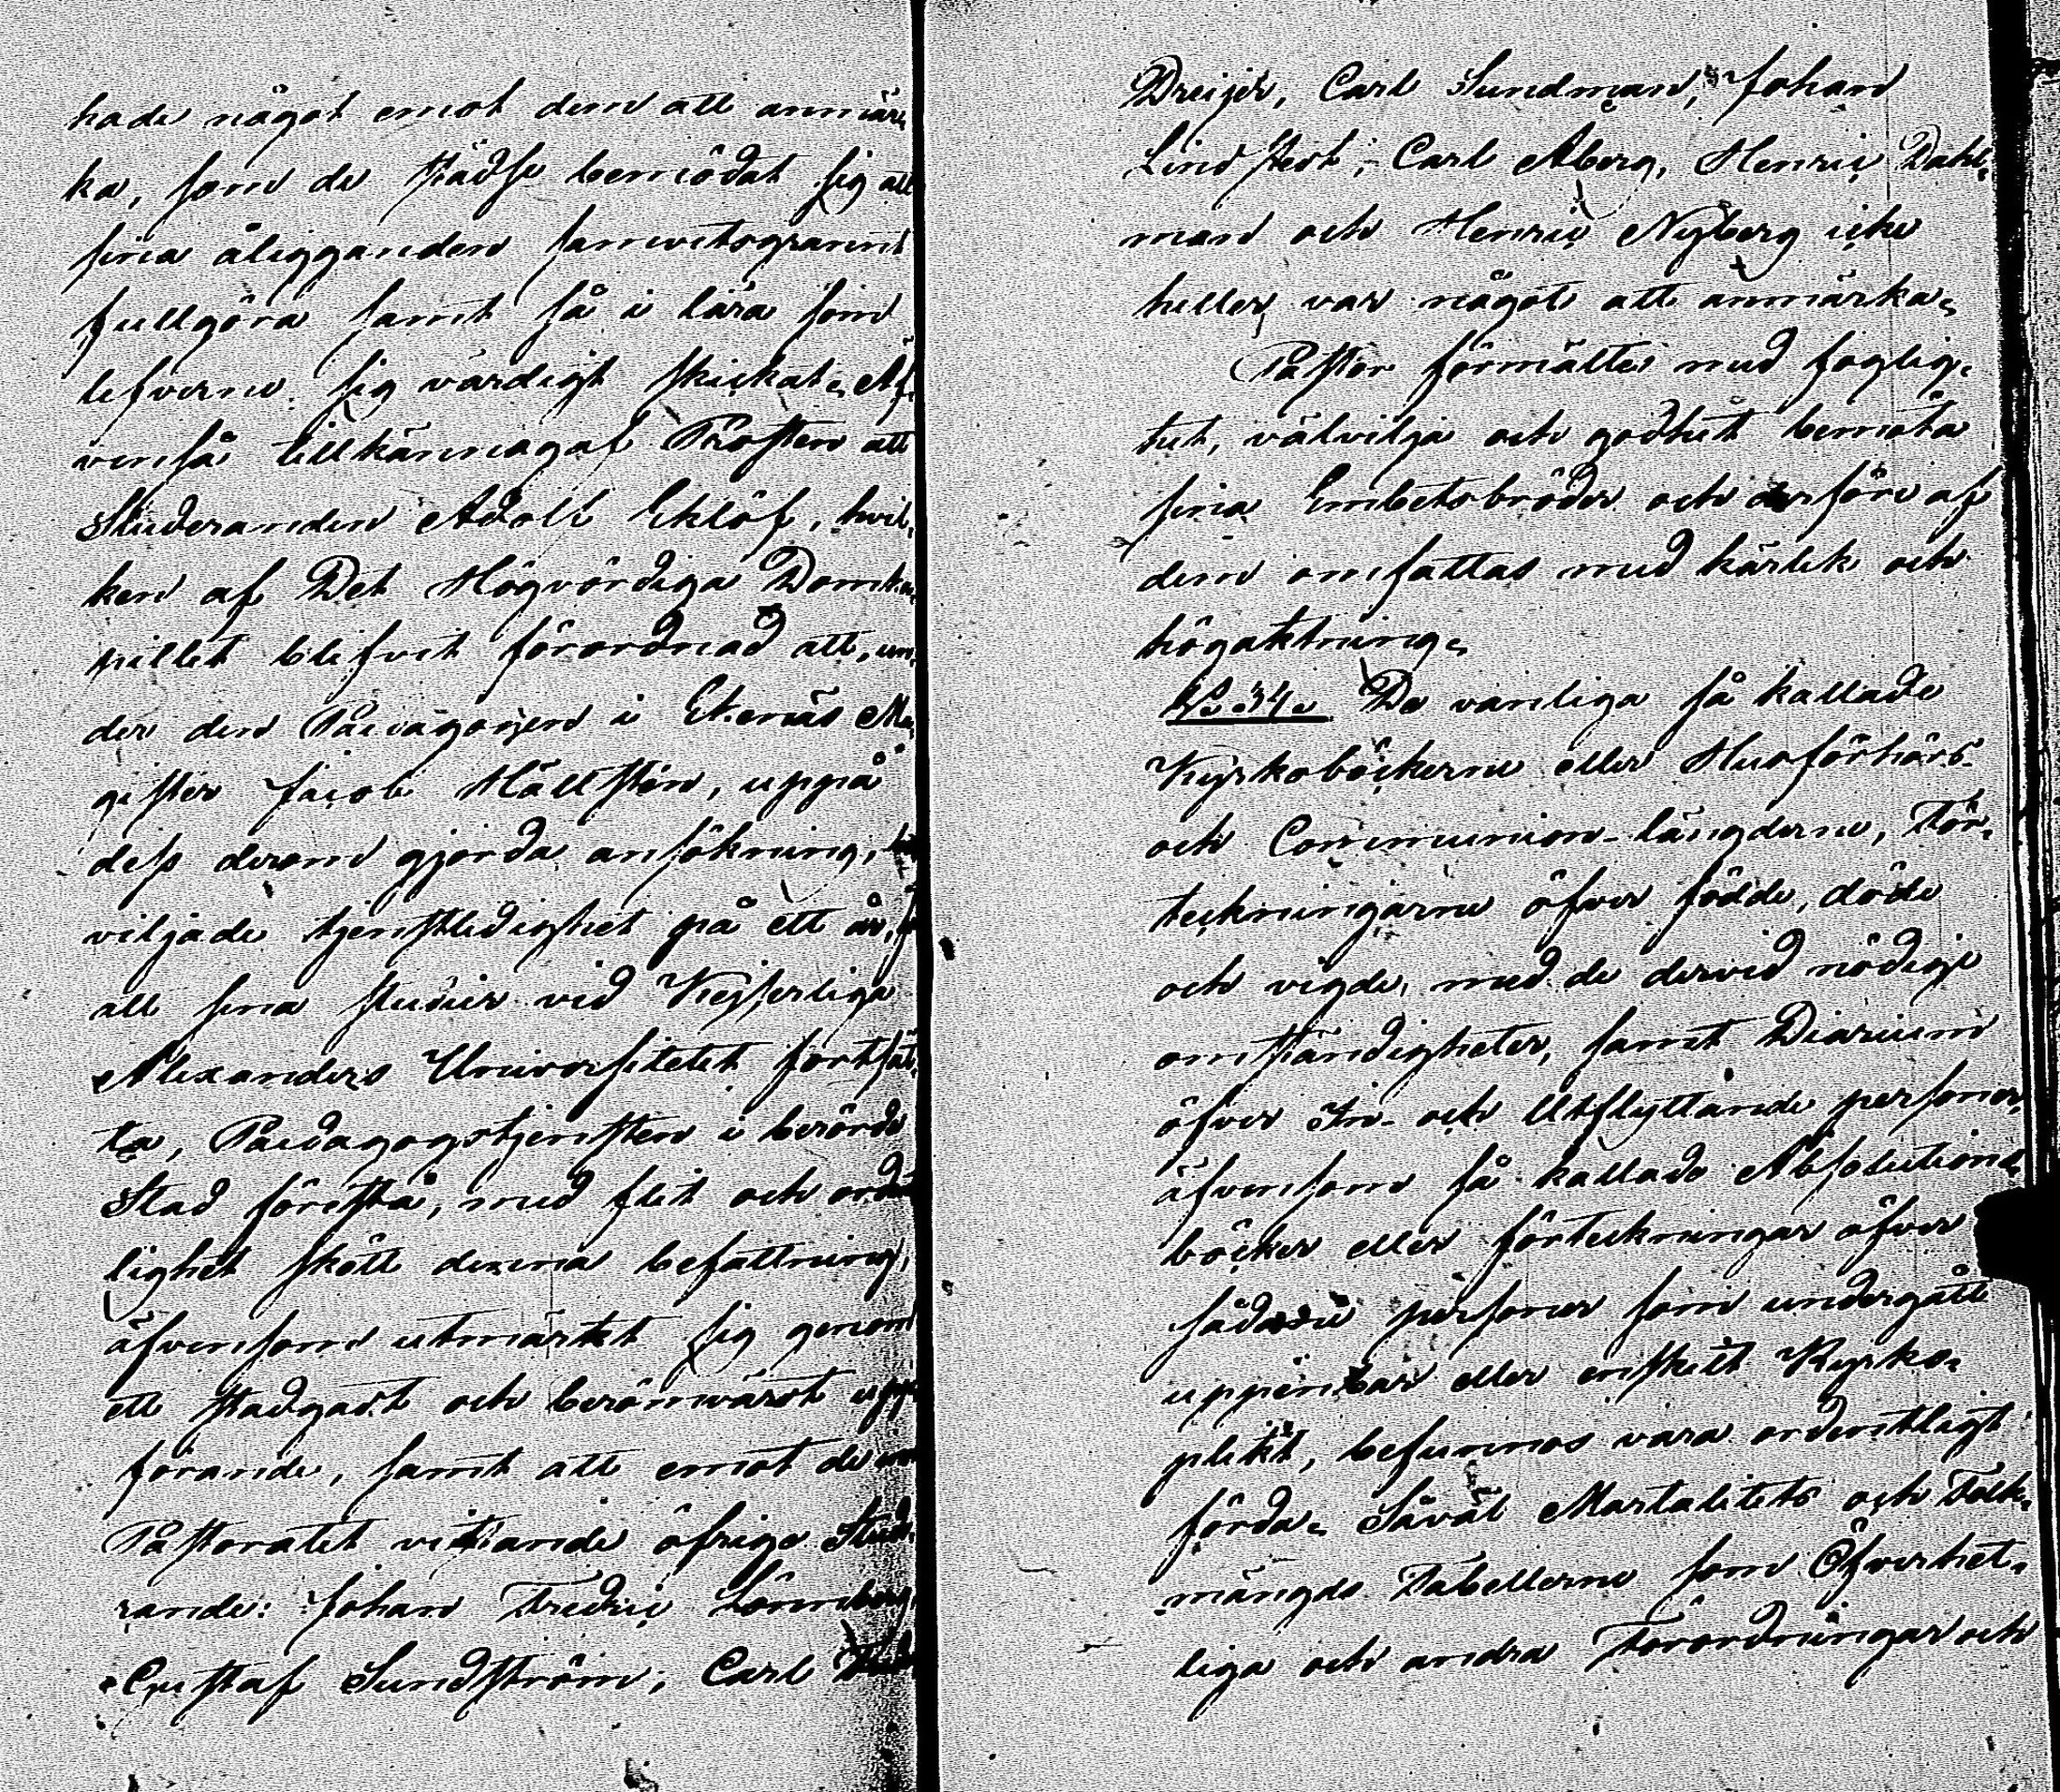 hade något emot dem att anmär-
ka, som de städse bemödat sig att
sina åligganden samvetsgrannt
fullgöra samt så i lära som
lefverne sig värdigt skickat. Äf-
venså tillkännagaf Prosten att
Studeranden Adolf Eklöf, hvil-
ken af Det Högvördiga Domka-
pitlet blifvit förordnad att, un-
der den Pædagogen i Ekenäs Ma-
gister Jacob Hällsten, uppå
dess derom gjorda ansökning,
viljade tjenstledighet på ett år,
att sina studier vid Kejserliga
Alexanders Universitetet fortsät-
ta, Pædagogstjensten i berörde
Stad förestå, med flit och ordent-
lighet skött denna befattning,
äfvensom utmärkt sig genom
ett stadgadt och berömvärdt upp-
förande, samt att emot de
Pastoratet vistande öfrige Stude-
rande: Johan Fredric Lönnberg,
Gustaf Sundström, Carl
Dreijer, Carl Sundman, Johan
Lindstedt, Carl Åberg, Henric Dahl-
man och Henric Nyberg icke
heller var något att anmärka.
Pastor förmältes med foglig-
het, välvilja och godhet bemöta
sina Embetsbröder och derföre af
dem omfattas med kärlek och
högaktning.
§ 34. De vanliga så kallade
Kyrkoböckerne eller Husförhörs-
och Communion-längderne, För-
teckningarne öfver födde, döde
och vigde, med de dervid nödige
omständigheter, samt Diarium
öfver In- och Utflyttande personer,
äfvensom så kallade Absolutions-
böcker eller förteckningar öfver
sådane personer som undergått
uppenbar eller enskilt Kyrko-
plikt, befunnos vara ordentligt
förda. Såväl Mortalitets och Folk-
mängds Tabellerne som Öfverhet-
liga och andra Förordningar och